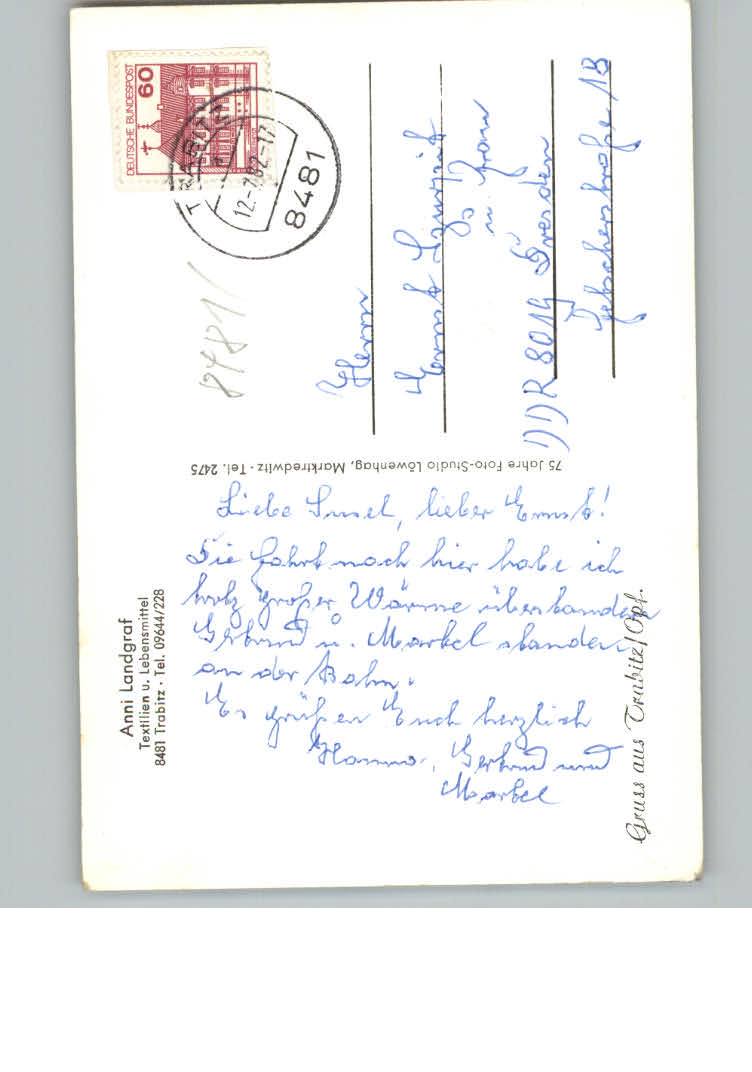 Anni Landgraf
Textilien u. Lebensmittel
8481 Trabitz · Tel. 09644/228
Liebe Susel, lieber Ernst!
Die Fahrt nach hier habe ich
trotz großer Wärme überstanden
Gertrud u. Markel standen
an der Bahn.
Es grüßen Euch herzlich
Hanna, Gertrud und
Markel
Gruss aus Trabitz/Opf.
75 Jahre Foto-Studio Löwenhag, Marktredwitz · Tel. 2475
DEUTSCHE BUNDESPOST
60
TRABITZ
12.-7.82-17
8481
8481
Herrn
Ernst
u. Frau
DDR 8019 Dresden
18